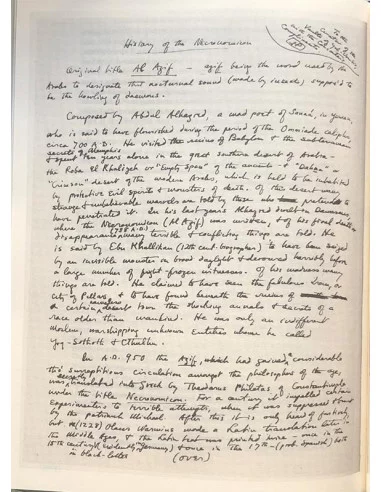 History of the Necronomicon
Original title Al Azif — azif being the word used by the
Arabs to designate that nocturnal sound (made by insects) suppos'd to
be the howling of daemons.
Composed by Abdul Alhazred, a mad poet of Sanaá, in Yemen,
who is said to have flourished during the period of the Ommiade caliphs,
circa 700 A.D. He visited the ruins of Babylon & the subterranean
secrets of Memphis
& spent ten years alone in the great southern desert of Arabia —
the Roba El Khaliyeh or "Empty Space" of the ancients — & "Dahna" or
"Crimson" desert of the modern Arabs, which is held to be inhabited
by protective evil spirits & monsters of death. Of this desert many
strange & unbelievable marvels are told by those who pretend to
have penetrated it. In his last years Alhazred dwelt in Damascus,
where the Necronomicon (Al Azif) was written, & of his final death or
disappearance (738 A.D.) many terrible & conflicting things are told. He
is said by Ebn Khallikan (12th cent. biographer) to have been seized
by an invisible monster in broad daylight & devoured horribly before
a large number of fright-frozen witnesses. Of his madness many
things are told. He claimed to have seen the fabulous Irem, or
city of Pillars, & to have found beneath the ruins of
a certain nameless desert town the shocking annals & secrets of a
race older than mankind. He was only an indifferent
Moslem, worshipping unknown Entities whom he called
Yog-Sothoth & Cthulhu.
In A.D. 950 the Azif, which had gained considerable
tho' surreptitious circulation amongst the philosophers of the age,
was secretly translated into Greek by Theodorus Philetas of Constantinople
under the title Necronomicon. For a century it impelled certain
experimenters to terrible attempts, when it was suppressed & burnt
by the patriarch Michael. After this it is only heard of furtively,
but (1228) Olaus Wormius made a Latin translation later in
the Middle Ages, & the Latin text was printed twice — once in the
15th century in black-letter (evidently in Germany) & once in the 17th — (prob. Spanish) both
(over)